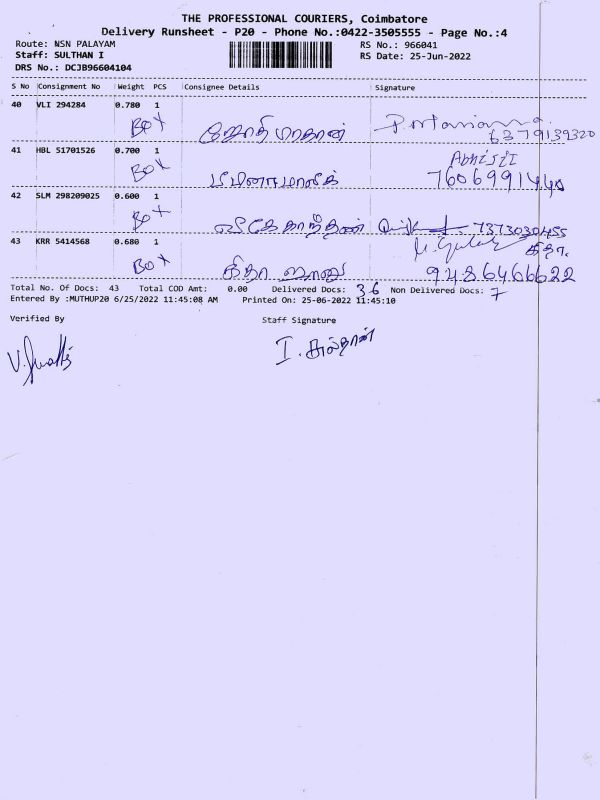 THE PROFESSIONAL COURIERS, Coimbatore
Delivery Runsheet - P20 - Phone No.:0422-3505555 - Page No.:4
Route: NSN PALAYAM RS No.: 966041
Staff: SULTHAN I RS Date: 25-Jun-2022
DRS No.: DCJB96604104
S No Consignment No Weight PCS Consignee Details Signature
40 VLI 294284 0.780 1
Box 6379139320
41 HBL 51701526 0.700 1 Abhisji
Box 7606991440
42 SLM 298209025 0.600 1
Box 7373030455
43 KRR 5414568 0.680 1 கீதா.
Box கீதா 9486466622
Total No. Of Docs: 43 Total COD Amt: 0.00 Delivered Docs: 36 Non Delivered Docs: 7
Entered By :MUTHUP20 6/25/2022 11:45:08 AM Printed On: 25-06-2022 11:45:10
Verified By Staff Signature
I. சுல்தான்